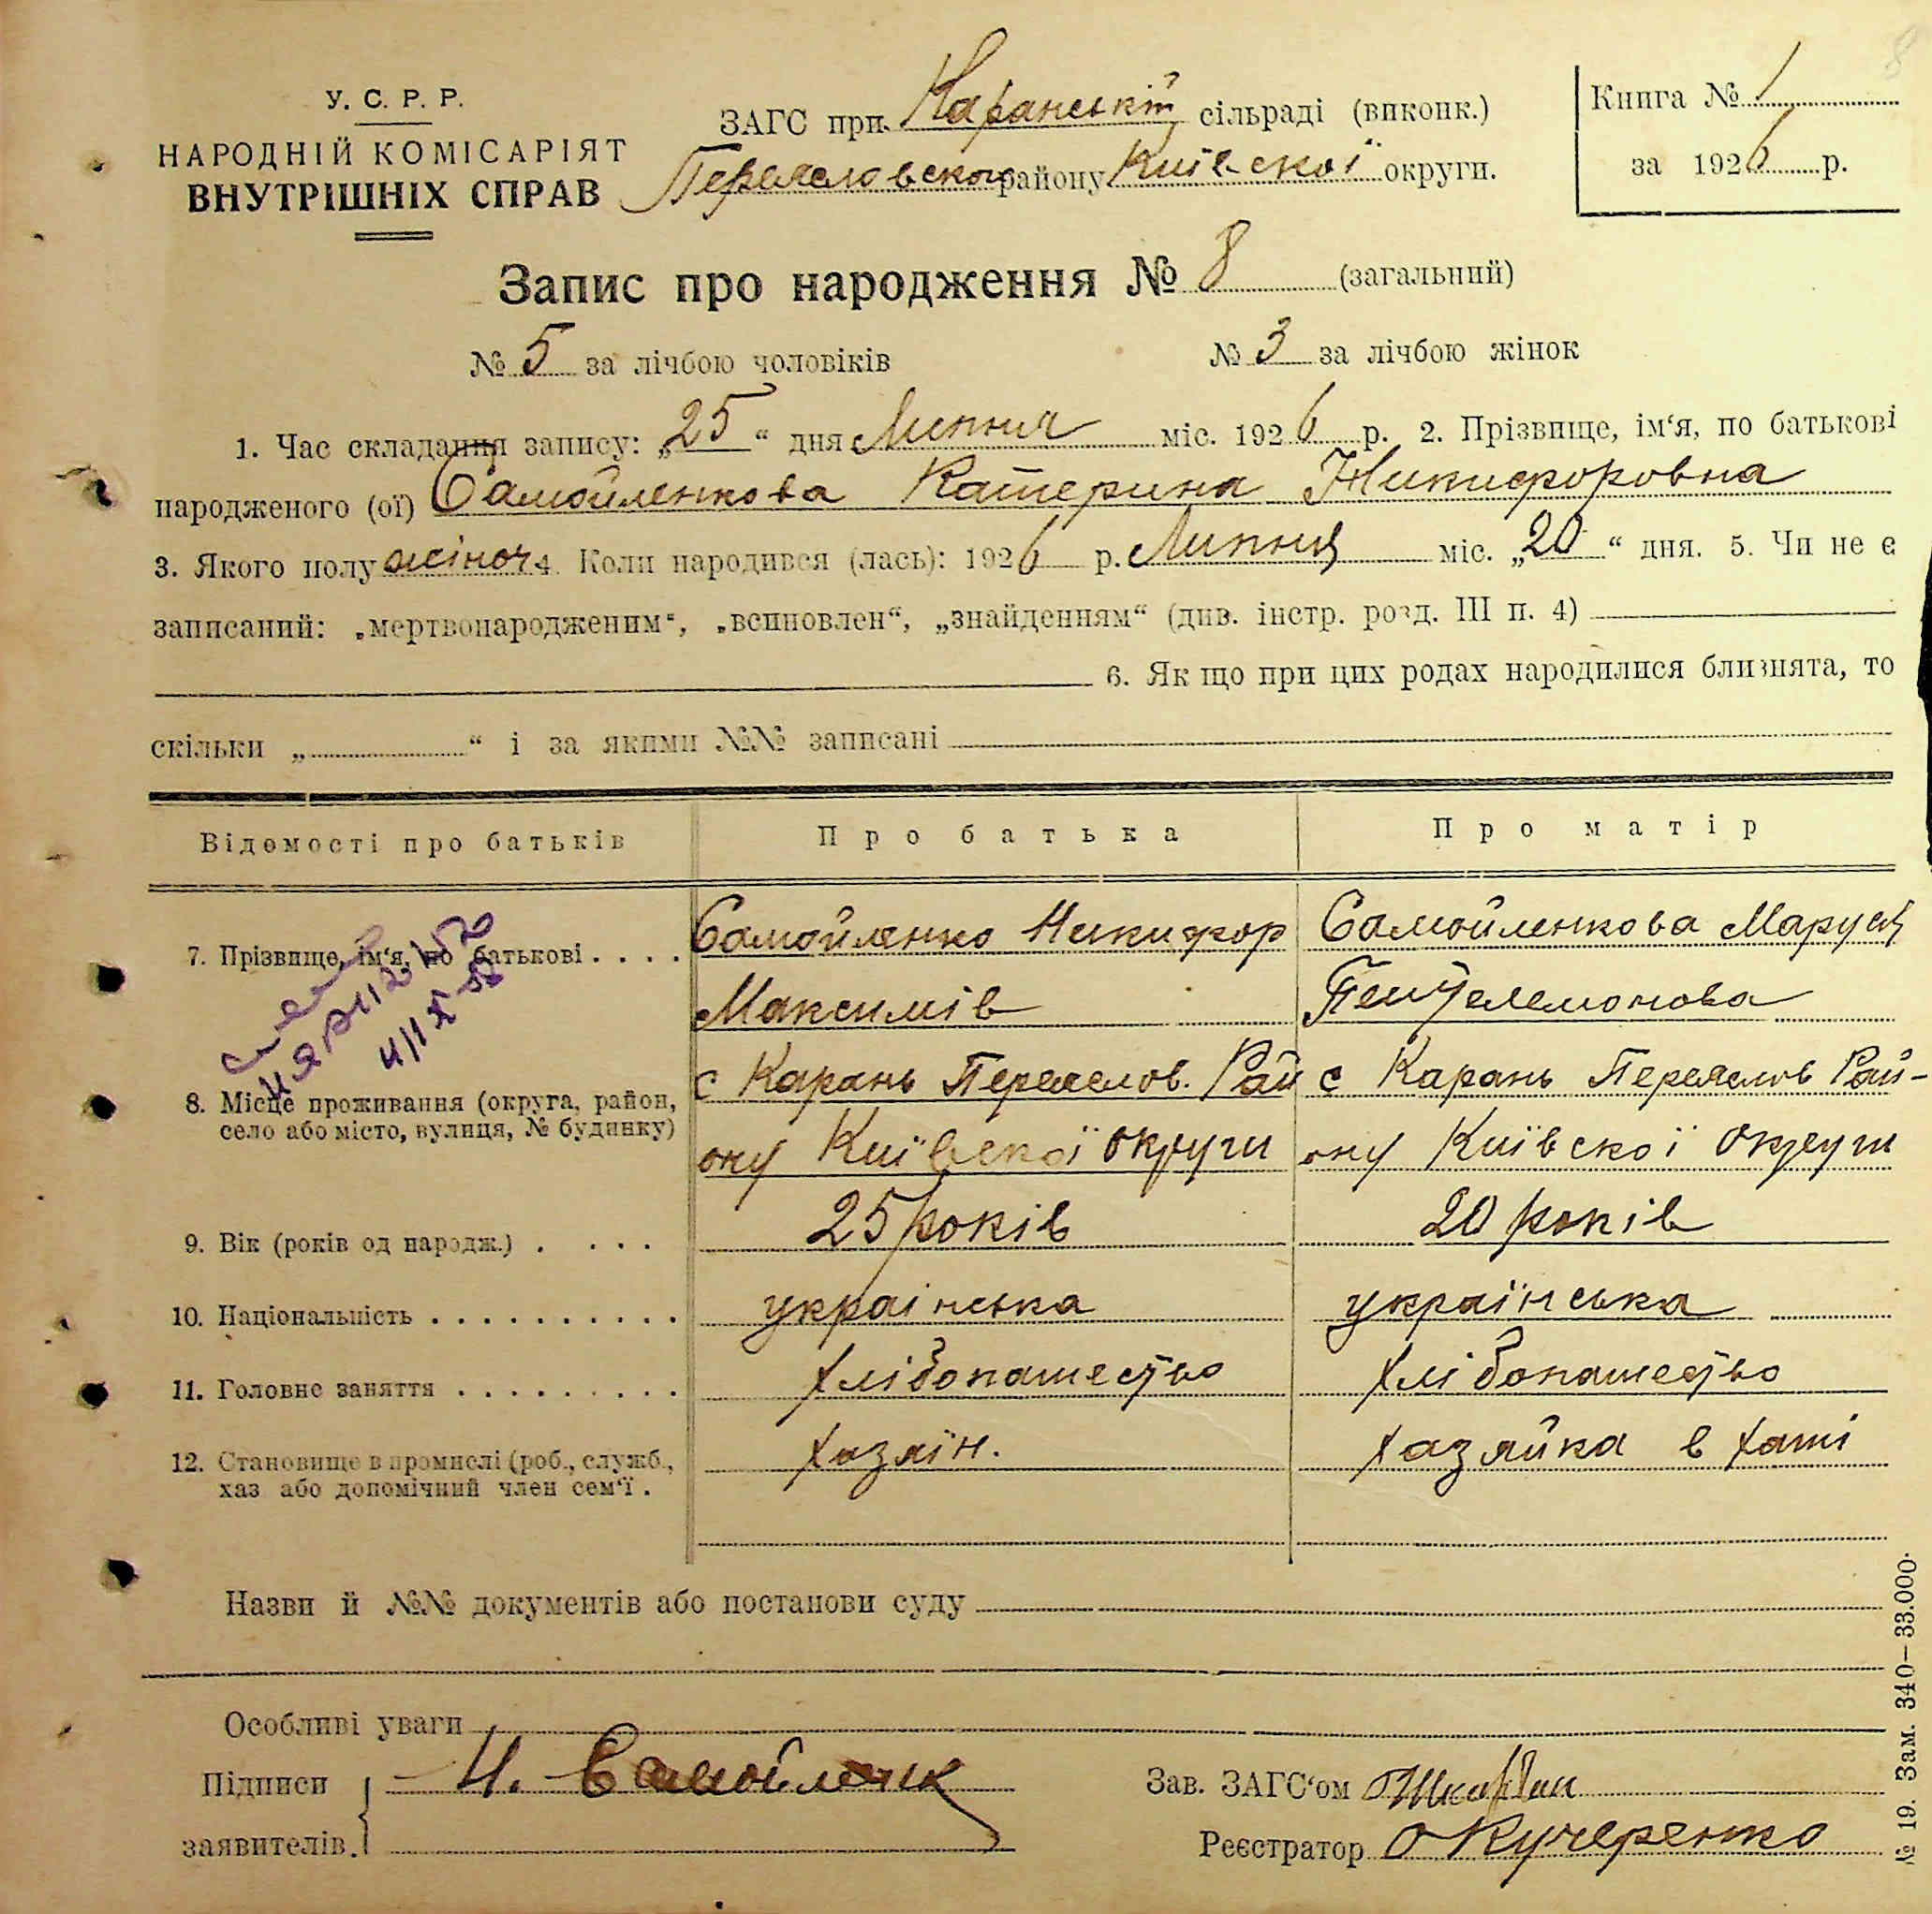 У. С. Р. Р.
НАРОДНІЙ КОМІСАРІЯТ
ВНУТРІШНІХ СПРАВ
ЗАГС при Каранській сільраді (виконк.)
Переяславського району Київскої округи.
Книга № 1
за 1926 р.
Запис про народження № 8 (загальний)
№ 5 за лічбою чоловіків № 3 за лічбою жінок
1. Час складання запису: „25“ дня Липня міс. 1926 р. 2. Прізвище, ім‘я, по батькові
народженого (ої) Самойленкова Катерина Никифоровна
3. Якого полу жіноч 4. Коли народився (лась): 1926 р. Липня міс. „20“ дня. 5. Чи не є
записаний: „мертвонародженим“, „всиновлен“, „знайденням“ (див. інстр. розд. III п. 4)
6. Як що при цих родах народилися близнята, то
скільки „ “ і за якими №№ записані
Відомості про батьків Про батька Про матір
7. Прізвище, ім‘я, по батькові . . . . Самойленко Никифор Самойленкова Маруся
Максимів
8. Місце проживання (округа, район, с Карань Переяслов. Рай с Карань Переяслов Рай-
село або місто, вулиця, № будинку) ону Київскої округи ону Київскої округи
9. Вік (років од народж.) . . . . 25 років 20 років
10. Національність . . . . . . . . . . українська українська
11. Головне заняття . . . . . . . . . хлібопашество хлібопашество
12. Становище в промислі (роб., служб., хазяїн. хазяйка в хаті
хаз або допомічний член сем‘ї .
Назви й №№ документів або постанови суду
Особливі уваги
Підписи Н. Самойленк
заявителів.
Зав. ЗАГС‘ом
Реєстратор О Кучеренко
№ 19. Зам. 340—33.000.